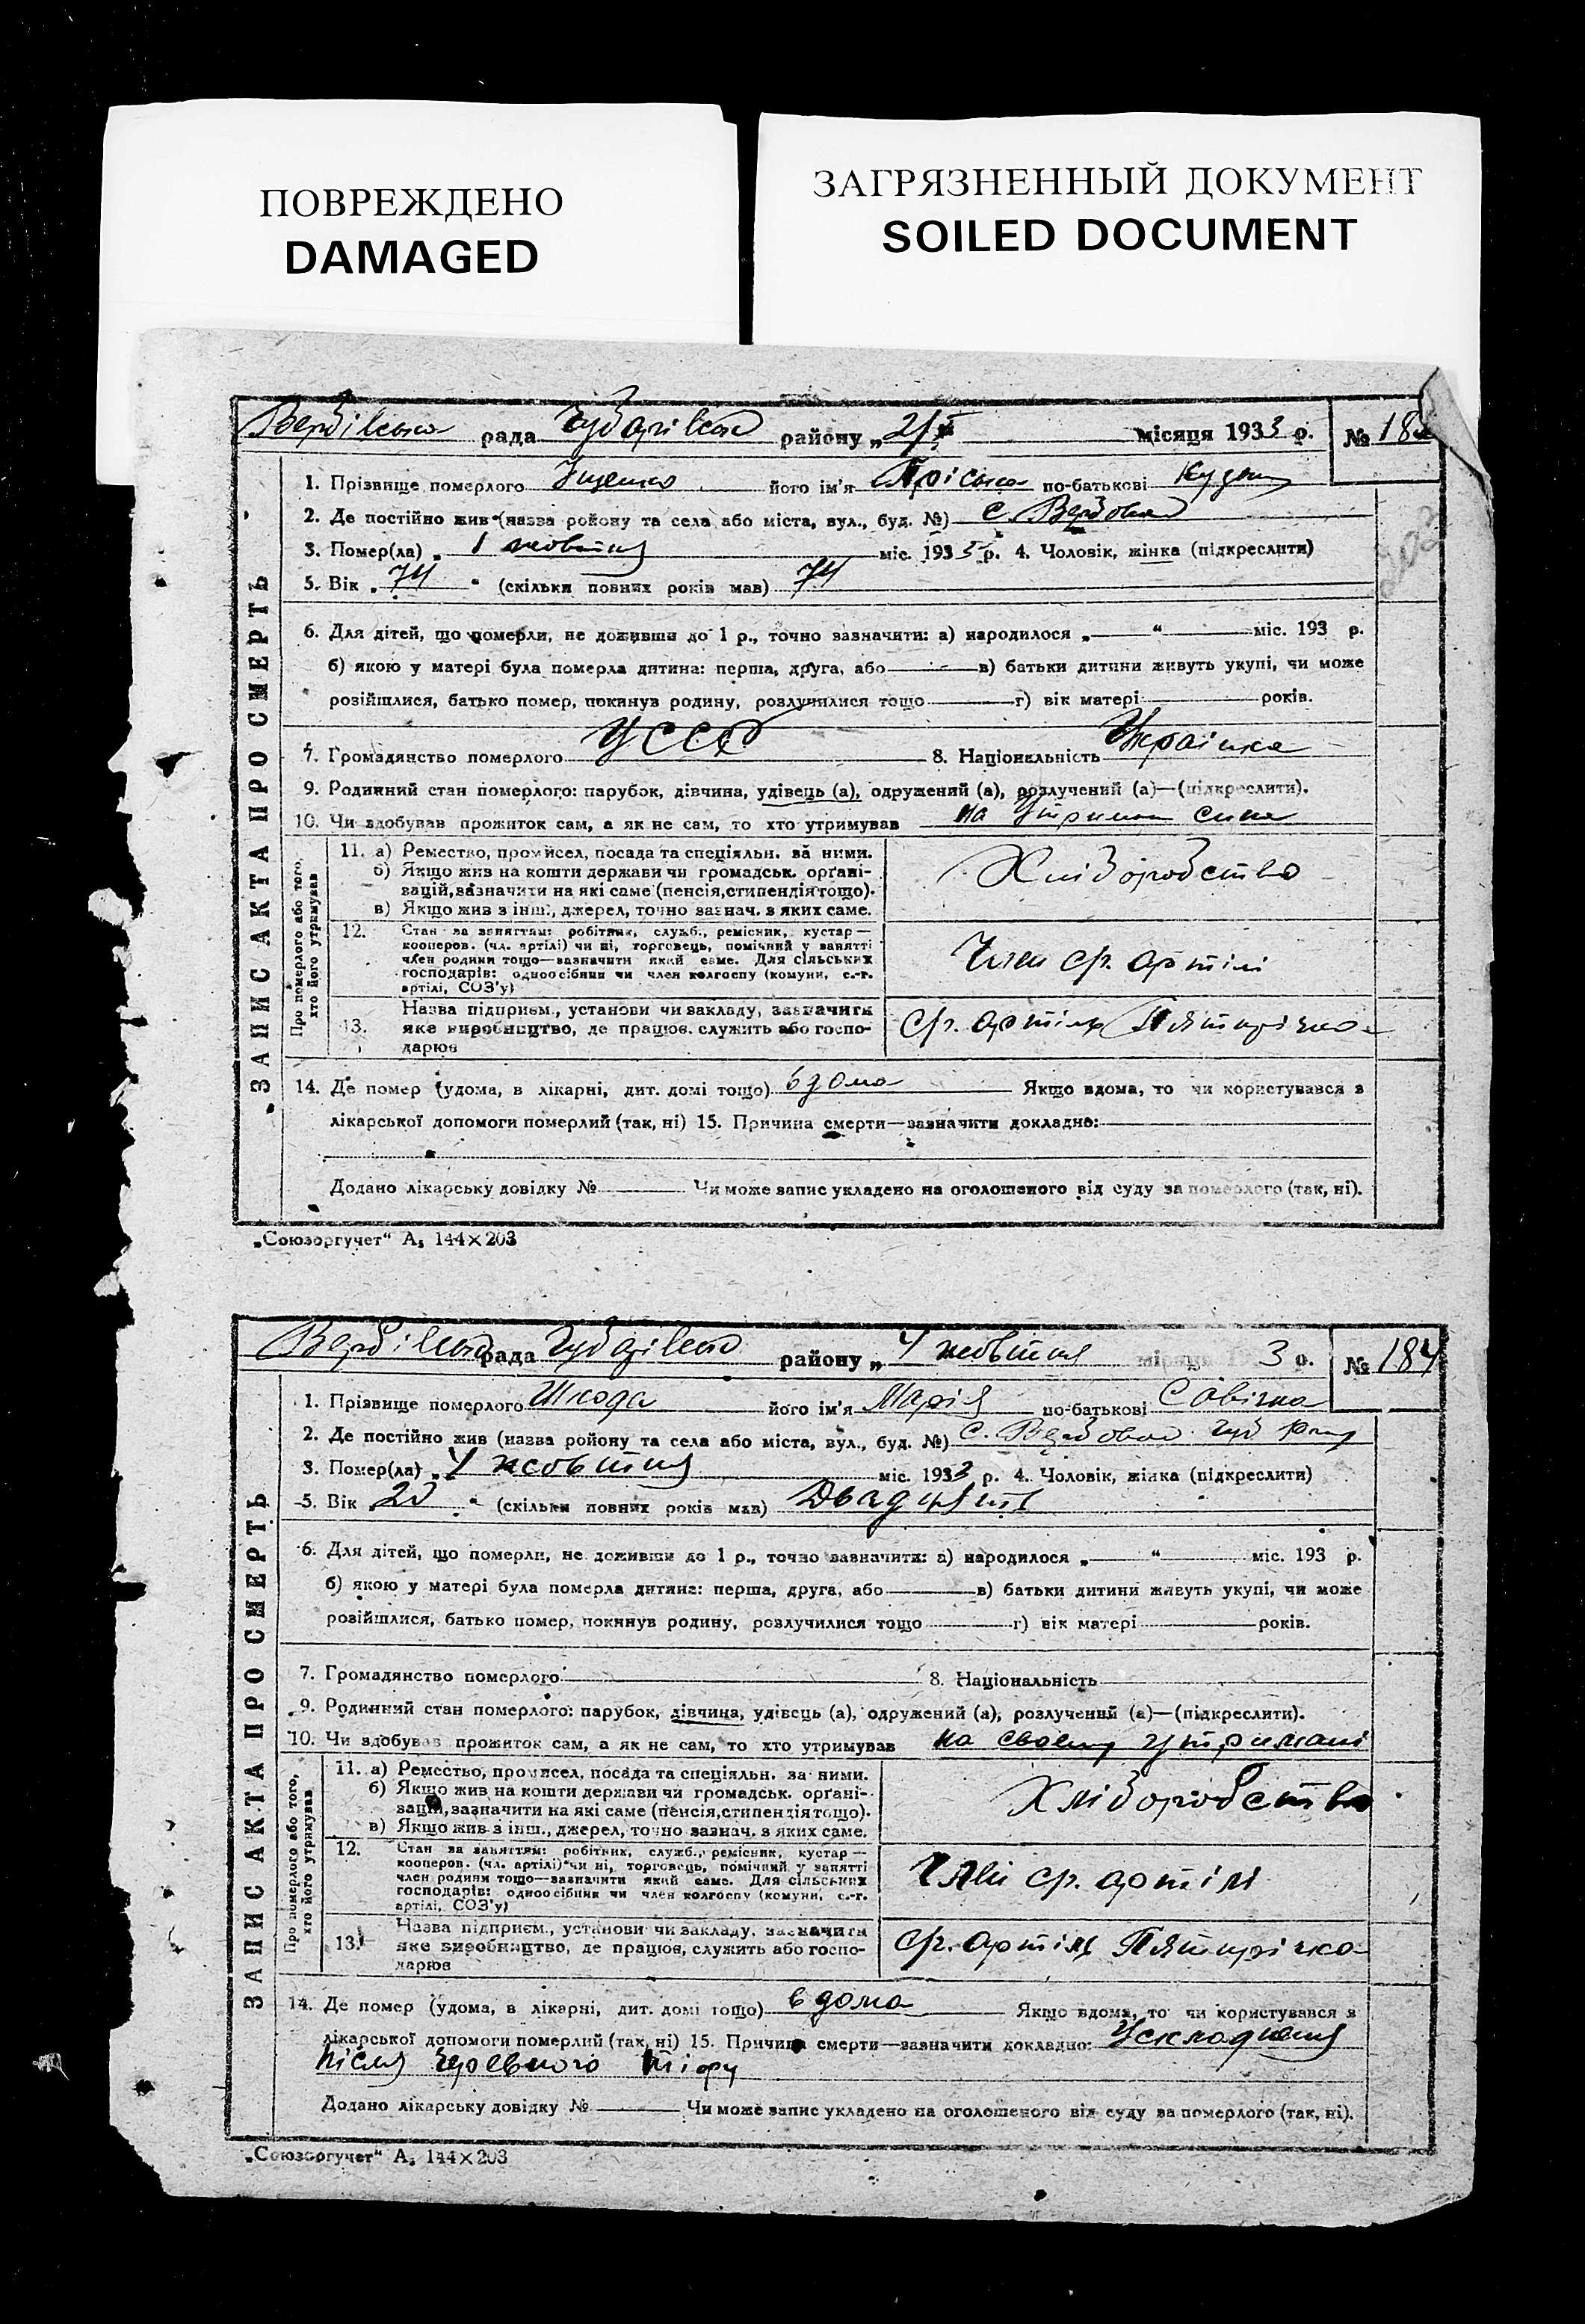 ПОВРЕЖДЕНО
DAMAGED
ЗАГРЯЗНЕННЫЙ ДОКУМЕНТ
SOILED DOCUMENT
Вербівська рада Чубарівськ району „ 2/X місяця 1933 р. № 18
202
ЗАПИС АКТА ПРО СМЕРТЬ
1. Прізвище померлого Іщенко його ім'я Пріська по-батькові
2. Де постійно жив (назва району та села або міста, вул., буд. №) с. Вербова
3. Помер(ла) „ 1 жовтня міс. 193 р. 4. Чоловік, жінка (підкреслити)
5. Вік „ 74 “ (скільки повних років мав) 74
6. Для дітей, що померли, не доживши до 1 р., точно зазначити: а) народилося „ “ міс. 193 р.
б) якою у матері була померла дитина: перша, друга, або в) батьки дитини живуть укупі, чи може
розійшлися, батько помер, покинув родину, розлучилися тощо г) вік матері років.
7. Громадянство померлого УССР 8. Національність Українка
9. Родинний стан померлого: парубок, дівчина, удівець (а), одружений (а), розлучений (а)—(підкреслити).
10. Чи здобував прожиток сам, а як не сам, то хто утримував на утриман сина
Про померлого або того, хто його утримував
11. а) Ремество, промисел, посада та спеціяльн. за ними.
б) Якщо жив на кошти держави чи громадськ. орґані-
зацій, зазначити на які саме (пенсія, стипендія тощо).
в) Якщо жив з інш., джерел, точно зазнач. з яких саме.
Хліборобство
12. Стан за заняттям: робітник, служб., ремісник, кустар—
кооперов. (чл. артілі) чи ні, торговець, помічний у занятті
член родини тощо—зазначити який саме. Для сільських
господарів: одноосібник чи член колгоспу (комуни, с.-г.
артілі, СОЗ'у)
Член с/г. артілі
13. Назва підприєм., установи чи закладу, зазначити
яке виробництво, де працюв. служить або госпо-
дарює
с/г. артіль Пятирічка
14. Де помер (удома, в лікарні, дит. домі тощо) вдома Якщо вдома, то чи користувався з
лікарської допомоги померлий (так, ні) 15. Причина смерти—зазначити докладно:
Додано лікарську довідку № Чи може запис укладено на оголошеного від суду за померлого (так, ні).
„Союзоргучет“ А₅ 144×203
Вербівська рада Чубарівськ району „ 4 жовтня місяця 3 р. № 184
ЗАПИС АКТА ПРО СМЕРТЬ
1. Прізвище померлого Шкода його ім'я Марія по-батькові Савічна
2. Де постійно жив (назва району та села або міста, вул., буд. №) с. Вербова Чуб р-ну
3. Помер(ла) „ 4 жовтня міс. 1933 р. 4. Чоловік, жінка (підкреслити)
5. Вік 20 “ (скільки повних років мав) Двадцять
6. Для дітей, що померли, не доживши до 1 р., точно зазначити: а) народилося „ “ міс. 193 р.
б) якою у матері була померла дитина: перша, друга, або в) батьки дитини живуть укупі, чи може
розійшлися, батько помер, покинув родину, розлучилися тощо г) вік матері років.
7. Громадянство померлого 8. Національність
9. Родинний стан померлого: парубок, дівчина, удівець (а), одружений (а), розлучений (а)—(підкреслити).
10. Чи здобував прожиток сам, а як не сам, то хто утримував на своему утримані
Про померлого або того, хто його утримував
11. а) Ремество, промисел, посада та спеціяльн. за ними.
б) Якщо жив на кошти держави чи громадськ. орґані-
зацій, зазначити на які саме (пенсія, стипендія тощо).
в) Якщо жив з інш., джерел, точно зазнач. з яких саме.
Хліборобство
12. Стан за заняттям: робітник, служб., ремісник, кустар—
кооперов. (чл. артілі) чи ні, торговець, помічний у занятті
член родини тощо—зазначити який саме. Для сільських
господарів: одноосібник чи член колгоспу (комуни, с.-г.
артілі, СОЗ'у)
Член с/г. артілі
13. Назва підприєм., установи чи закладу, зазначити
яке виробництво, де працює, служить або госпо-
дарює
с/г. артіль Пятирічка
14. Де помер (удома, в лікарні, дит. домі тощо) вдома Якщо вдома, то чи користувався з
лікарської допомоги померлий (так, ні) 15. Причина смерти—зазначити докладно: Ускладненя
після черевного тіфу
Додано лікарську довідку № Чи може запис укладено на оголошеного від суду за померлого (так, ні).
„Союзоргучет“ А₅ 144×203